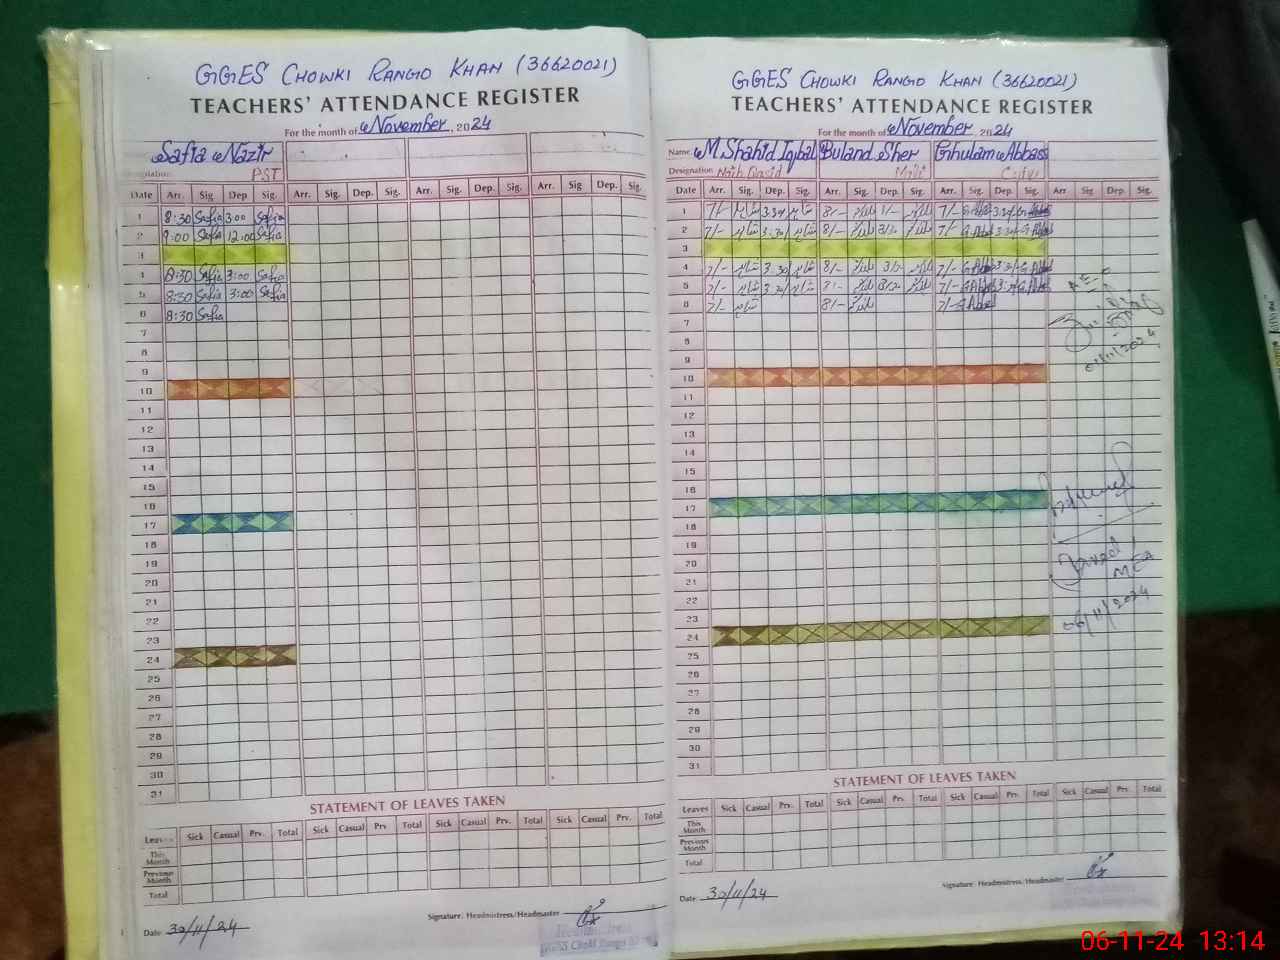 GGES CHOWKI RANGO KHAN (36620021)
TEACHERS' ATTENDANCE REGISTER
For the month of November, 2024
Safia Nazir
PST
Date Arr. Sig Dep Sig. Arr. Sig. Dep. Sig. Arr. Sig. Dep. Sig. Arr. Sig Dep. Sig.
1 8:30 Safia 3:00 Safia
2 9:00 Safia 12:00 Safia
3
4 8:30 Safia 3:00 Safia
5 8:30 Safia 3:00 Safia
6 8:30 Safia
7
8
9
10
11
12
13
14
15
16
17
18
19
20
21
22
23
24
25
26
27
28
29
30
31
STATEMENT OF LEAVES TAKEN
Leaves Sick Casual Prv. Total Sick Casual Prv Total Sick Casual Prv. Total Sick Casual Prv. Total
This Month
Previous Month
Total
Date 30/11/24
Signature: Headmistress/Headmaster
GGES CHOWKI RANGO KHAN (36620021)
TEACHERS' ATTENDANCE REGISTER
For the month of November, 2024
Name: M.Shahid Iqbal Buland Sher Ghulam Abbass
Designation Naib Qasid Mali
Date Arr. Sig. Dep. Sig. Arr. Sig. Dep. Sig. Arr. Sig. Dep. Sig. Arr Sig Dep. Sig.
1 7/- شاہد 3.30/ شاہد 8/- 1/- 7/- G.Abbas 3:30/-
2 7/- شاہد 3.30/ شاہد 8/- 7/- G.Abbas
3
4 7/- شاہد 3.30/ شاہد 8/- 7/- G.Abbas
5 7/- شاہد 3.30/ شاہد 8/- 7/- G.Abbas
6 7/- شاہد 8/- 7/- G.Abbas
7
8
9
10
11
12
13
14
15
16
17
18
19
20
21
22
23
24
25
26
27
28
29
30
31
AEO
Javed
MEA
06/11/2024
STATEMENT OF LEAVES TAKEN
Leaves Sick Casual Prv. Total Sick Casual Prv. Total Sick Casual Prv. Total Sick Casual Prv. Total
This Month
Previous Month
Total
Date 30/11/24
Signature: Headmistress/Headmaster
06-11-24 13:14